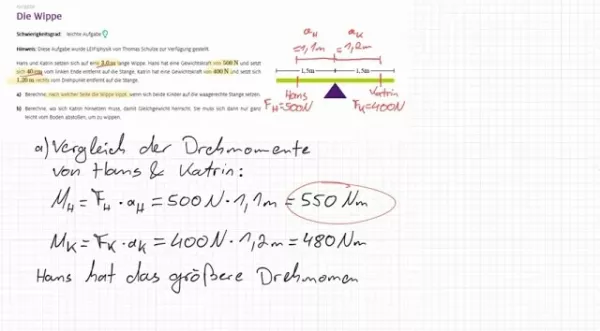 Aufgabe
Die Wippe
Schwierigkeitsgrad: leichte Aufgabe
Hinweis: Diese Aufgabe wurde LEIFIphysik von Thomas Schulze zur Verfügung gestellt.
Hans und Katrin setzen sich auf eine 3,0 m lange Wippe. Hans hat eine Gewichtskraft von 500 N und setzt
sich 40 cm vom linken Ende entfernt auf die Stange. Katrin hat eine Gewichtskraft von 400 N und setzt sich
1,20 m rechts vom Drehpunkt entfernt auf die Stange.
a) Berechne, nach welcher Seite die Wippe kippt, wenn sich beide Kinder auf die waagerechte Stange setzen.
b) Berechne, wo sich Katrin hinsetzen muss, damit Gleichgewicht herrscht. Sie muss sich dann nur ganz
leicht vom Boden abstoßen, um zu wippen.
aH aK
=1,1m =1,2m
1,5m 1,5m
Hans Katrin
FH=500N FK=400N
a) Vergleich der Drehmomente
von Hans & Katrin:
MH = FH · aH = 500 N · 1,1 m = 550 Nm
MK = FK · aK = 400 N · 1,2 m = 480 Nm
Hans hat das größere Drehmomen